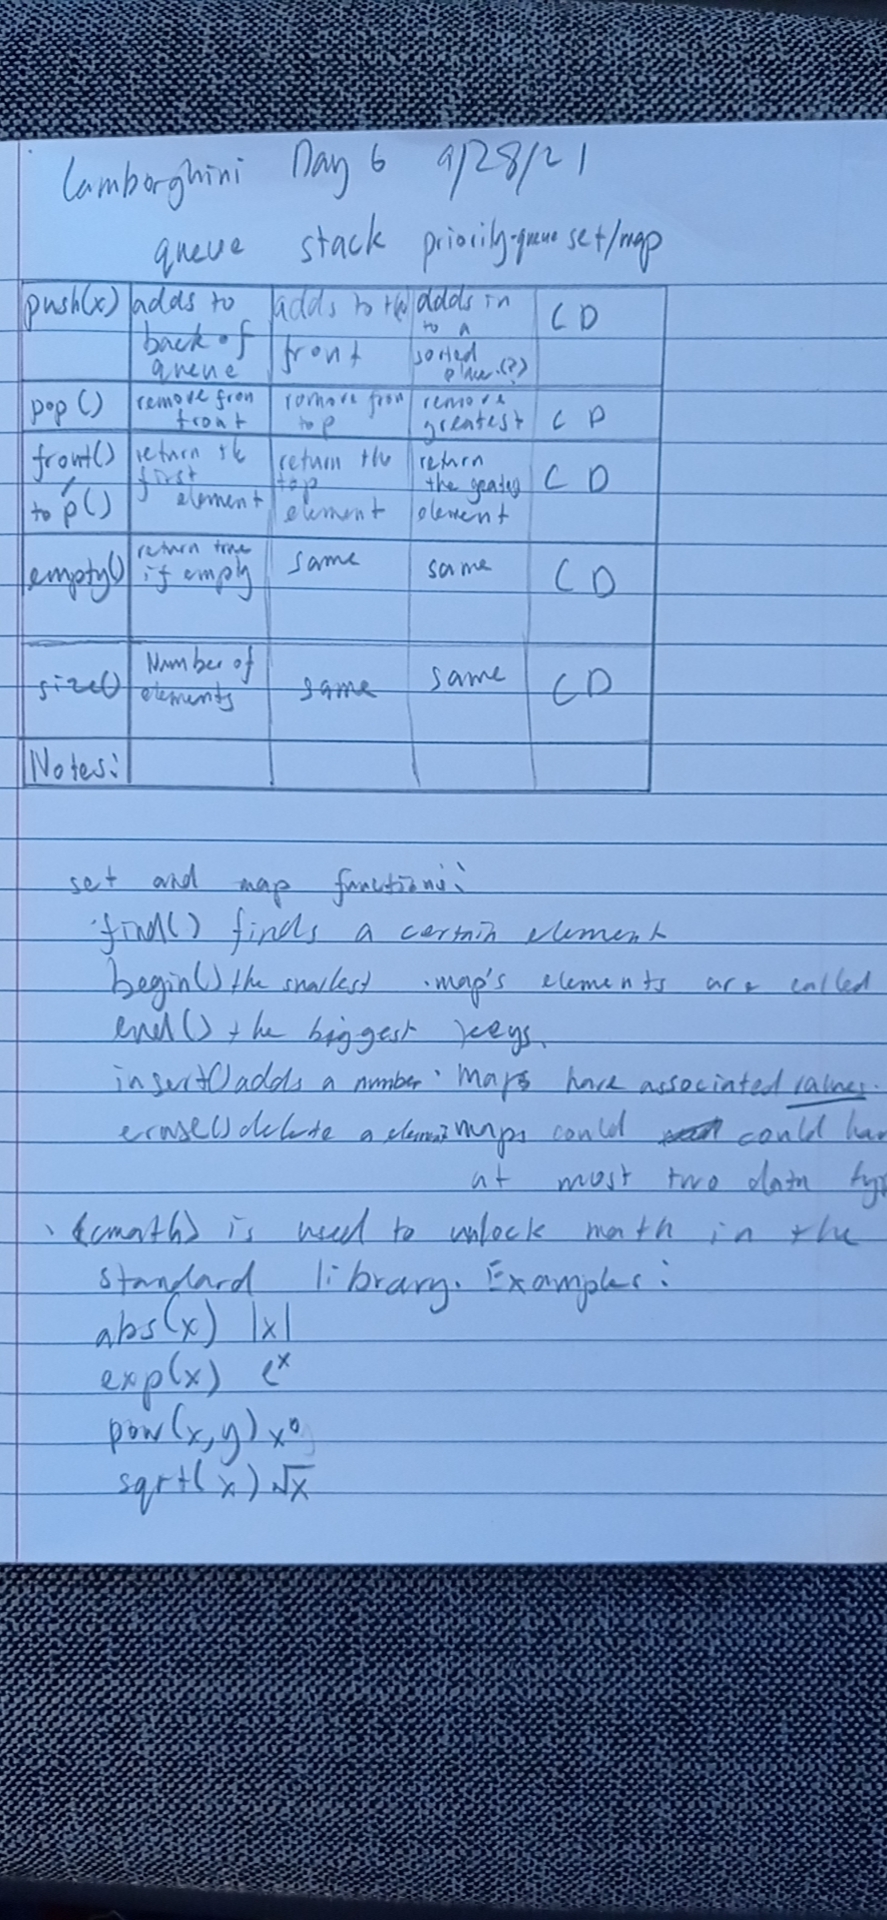 Lamborghini Day 6 9/28/21
queue stack priority-queue set/map
push(x) adds to back of queue adds to the front adds in to a sorted place.(?) CD
pop() remove from front remove from top remove greatest CD
front()/top() return the first element return the top element return the greatest element CD
empty() return true if empty same same CD
size() Number of elements same same CD
Notes:
set and map functions:
·find() finds a certain element
begin() the smallest ·map's elements are called
end() the biggest keys.
insert() adds a number · Maps have associated values.
erase() delete a element maps could could ha
at most two data typ
· <cmath> is used to unlock math in the
standard library. Examples:
abs(x) |x|
exp(x) eˣ
pow(x,y) xʸ
sqrt(x) √x